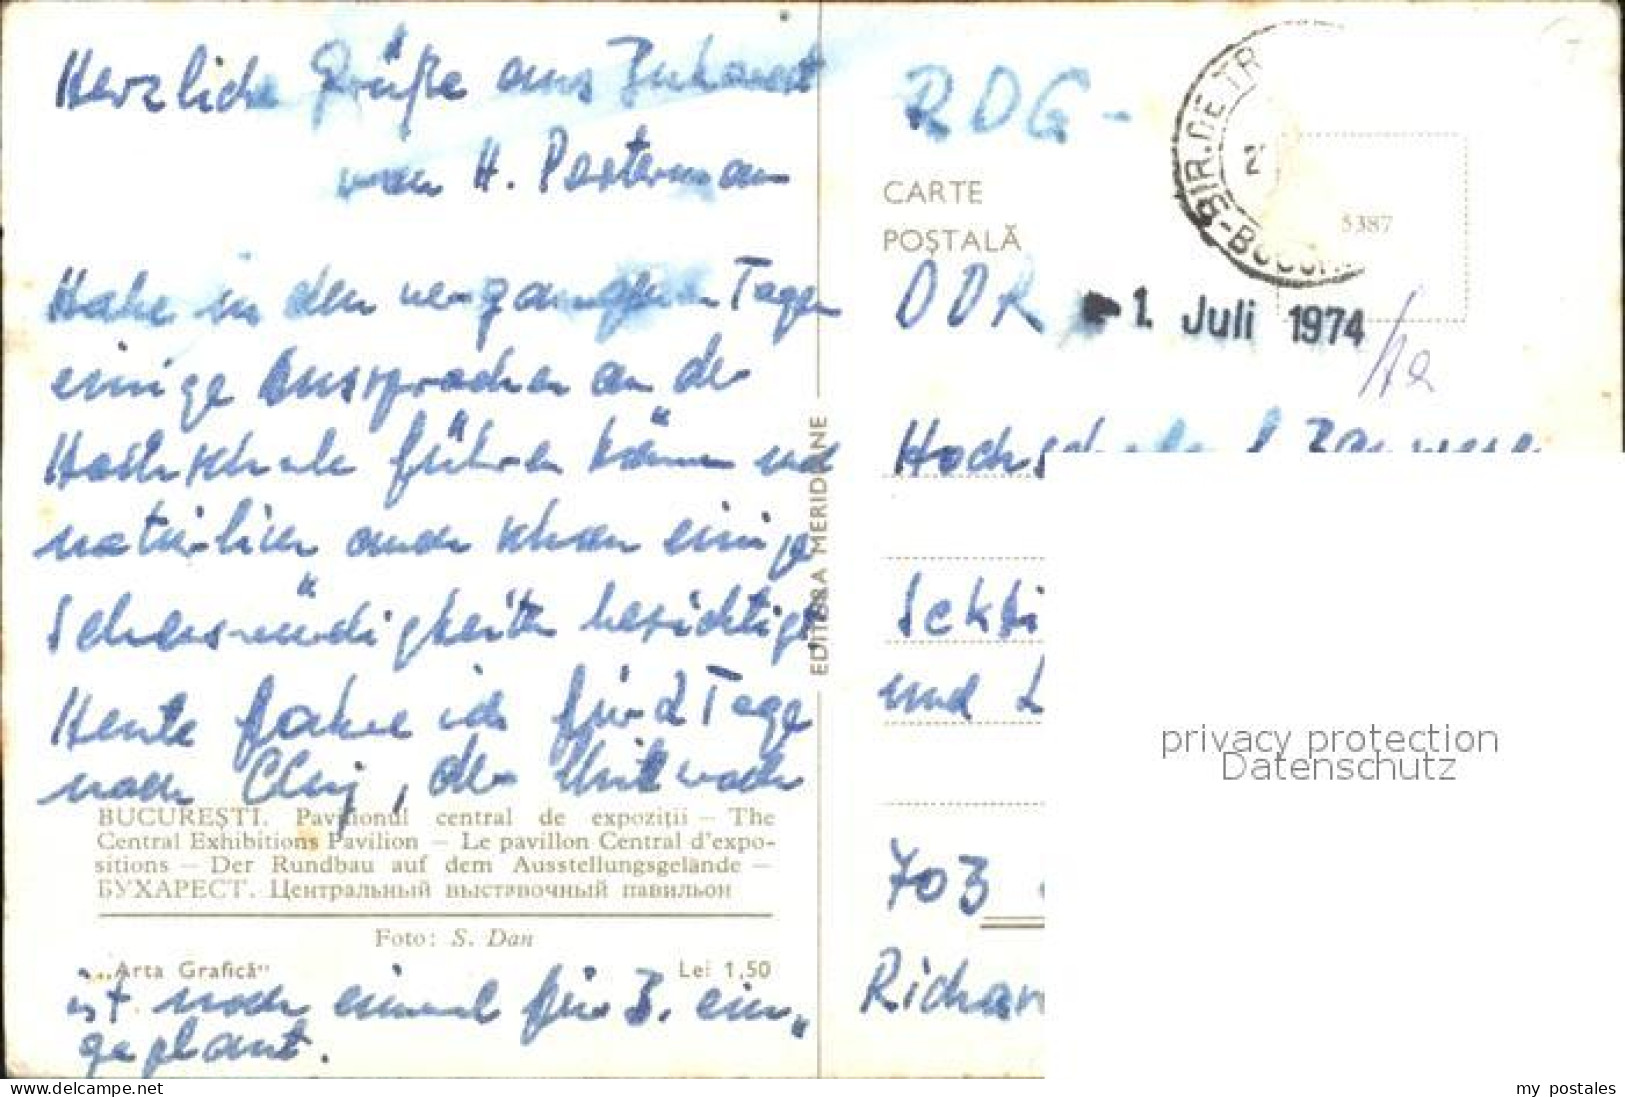 Herzliche Grüße aus Bukarest
von H. Postermann
Habe in den vergangenen Tagen
einige Aussprachen an der
Hochschule führen können und
natürlich auch schon einige
Sehenswürdigkeiten besichtigt
Heute fahre ich für 2 Tage
nach Cluj, der Mittwoch
BUCUREȘTI. Pavilionul central de expoziții — The
Central Exhibitions Pavilion — Le pavillon Central d'expo-
sitions — Der Rundbau auf dem Ausstellungsgelände —
БУХАРЕСТ. Центральный выставочный павильон
Foto: S. Dan
„Arta Grafică“
Lei 1,50
ist noch einmal für B. ein„
geplant.
EDITURA MERIDIANE
RDG-
CARTE
POȘTALĂ
BIR.DE TR
5387
DDR
1. Juli 1974
Hochschule f. Bauwesen
Sekti
und L
703
Richar
privacy protection
Datenschutz
my postales